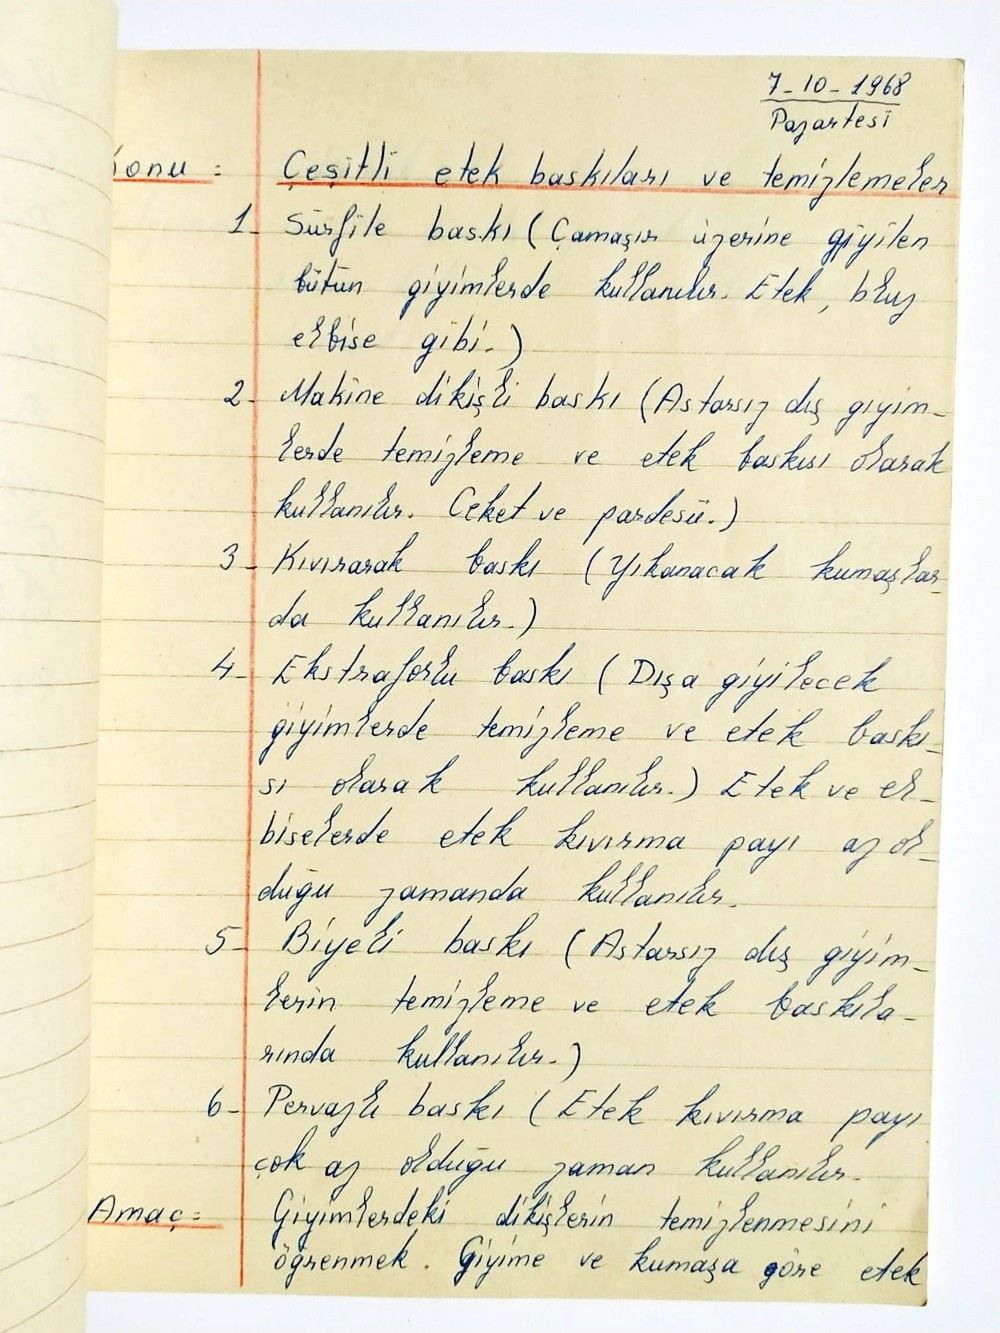 7-10-1968
Pazartesi
Konu: Çeşitli etek baskıları ve temizlemeler
1- Sürfile baskı (Çamaşır üzerine giyilen
bütün giyimlerde kullanılır. Etek, bluz
elbise gibi.)
2- Makine dikişli baskı (Astarsız dış giyim-
lerde temizleme ve etek baskısı olarak
kullanılır. Ceket ve pardesü.)
3- Kıvırarak baskı (Yıkanacak kumaşlar-
da kullanılır.)
4- Ekstraforlu baskı (Dışa giyilecek
giyimlerde temizleme ve etek baskı-
sı olarak kullanılır.) Etek ve el-
biselerde etek kıvırma payı az ol-
duğu zamanda kullanılır.
5- Biyeli baskı (Astarsız dış giyim-
lerin temizleme ve etek baskıla-
rında kullanılır.)
6- Pervazlı baskı (Etek kıvırma payı
çok az olduğu zaman kullanılır.
Amaç: Giyimlerdeki dikişlerin temizlenmesini
öğrenmek. Giyime ve kumaşa göre etek